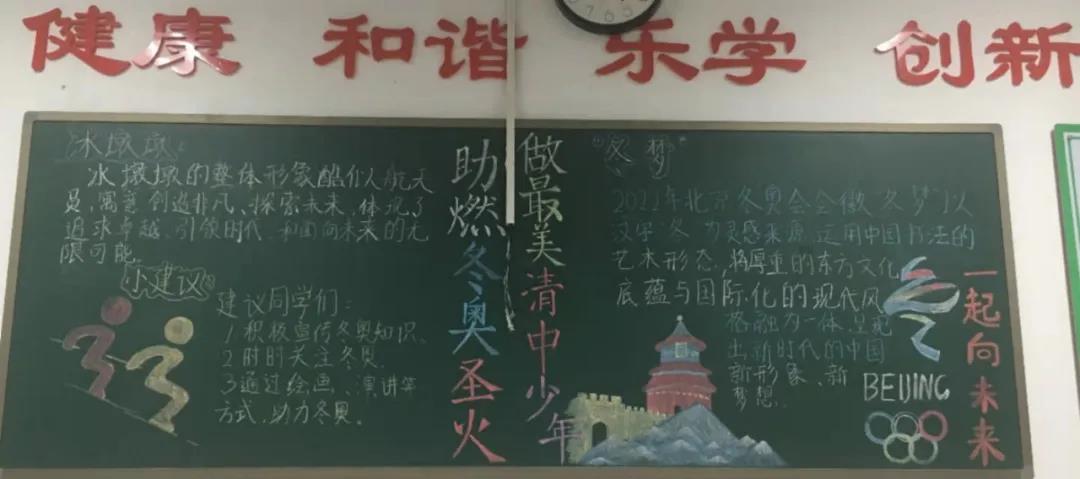 健康 和谐 乐学 创新
冰墩墩:
冰墩墩的整体形象酷似人航天
员,寓意创造非凡、探索未来,体现了
追求卓越、引领时代,和面向未来的无
限可能。
小建议
建议同学们:
1 积极宣传冬奥知识、
2 时时关注冬奥、
3 通过绘画、演讲等
方式,助力冬奥。
助燃冬奥圣火
做最美清中少年
"冬梦"
2022年北京冬奥会会徽"冬梦"以
汉字"冬"为灵感来源,运用中国书法的
艺术形态,将厚重的东方文化
底蕴与国际化的现代风
格融为一体,呈现
出新时代的中国
新形象、新
梦想.
BEIJING
一起向未来